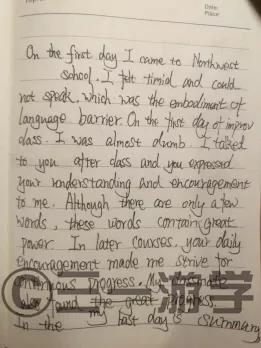 Date:
Place:
On the first day I came to Northwest
school. I felt timid and could
not speak, which was the embodiment of
language barrier. On the first day of improv
class. I was almost dumb. I talked
to you after class and you expressed
your understanding and encouragement
to me. Although there are only a few
words, these words contain great
power. In later courses, your daily
encouragement made me strive for
progress. My classmate
also found the great progress.
In the my last day's summary
游学